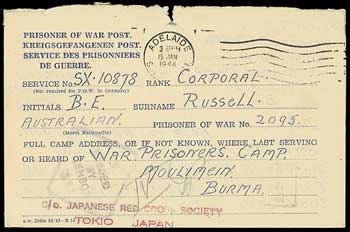 PRISONER OF WAR POST.
KRIEGSGEFANGENEN POST.
SERVICE DES PRISONNIERS
DE GUERRE.
ADELAIDE
15 JAN
1944
SERVICE No. SX.10878 RANK CORPORAL
(Not required for P.O.W. in Germany)
INITIALS B.E. SURNAME RUSSELL.
AUSTRALIAN. PRISONER OF WAR No. 2095.
(Insert Nationality)
FULL CAMP ADDRESS, OR IF NOT KNOWN, WHERE LAST SERVING
OR HEARD OF WAR. PRISONERS. CAMP.
MOULMEIN.
BURMA.
c/o. JAPANESE RED CROSS SOCIETY
TOKIO JAPAN